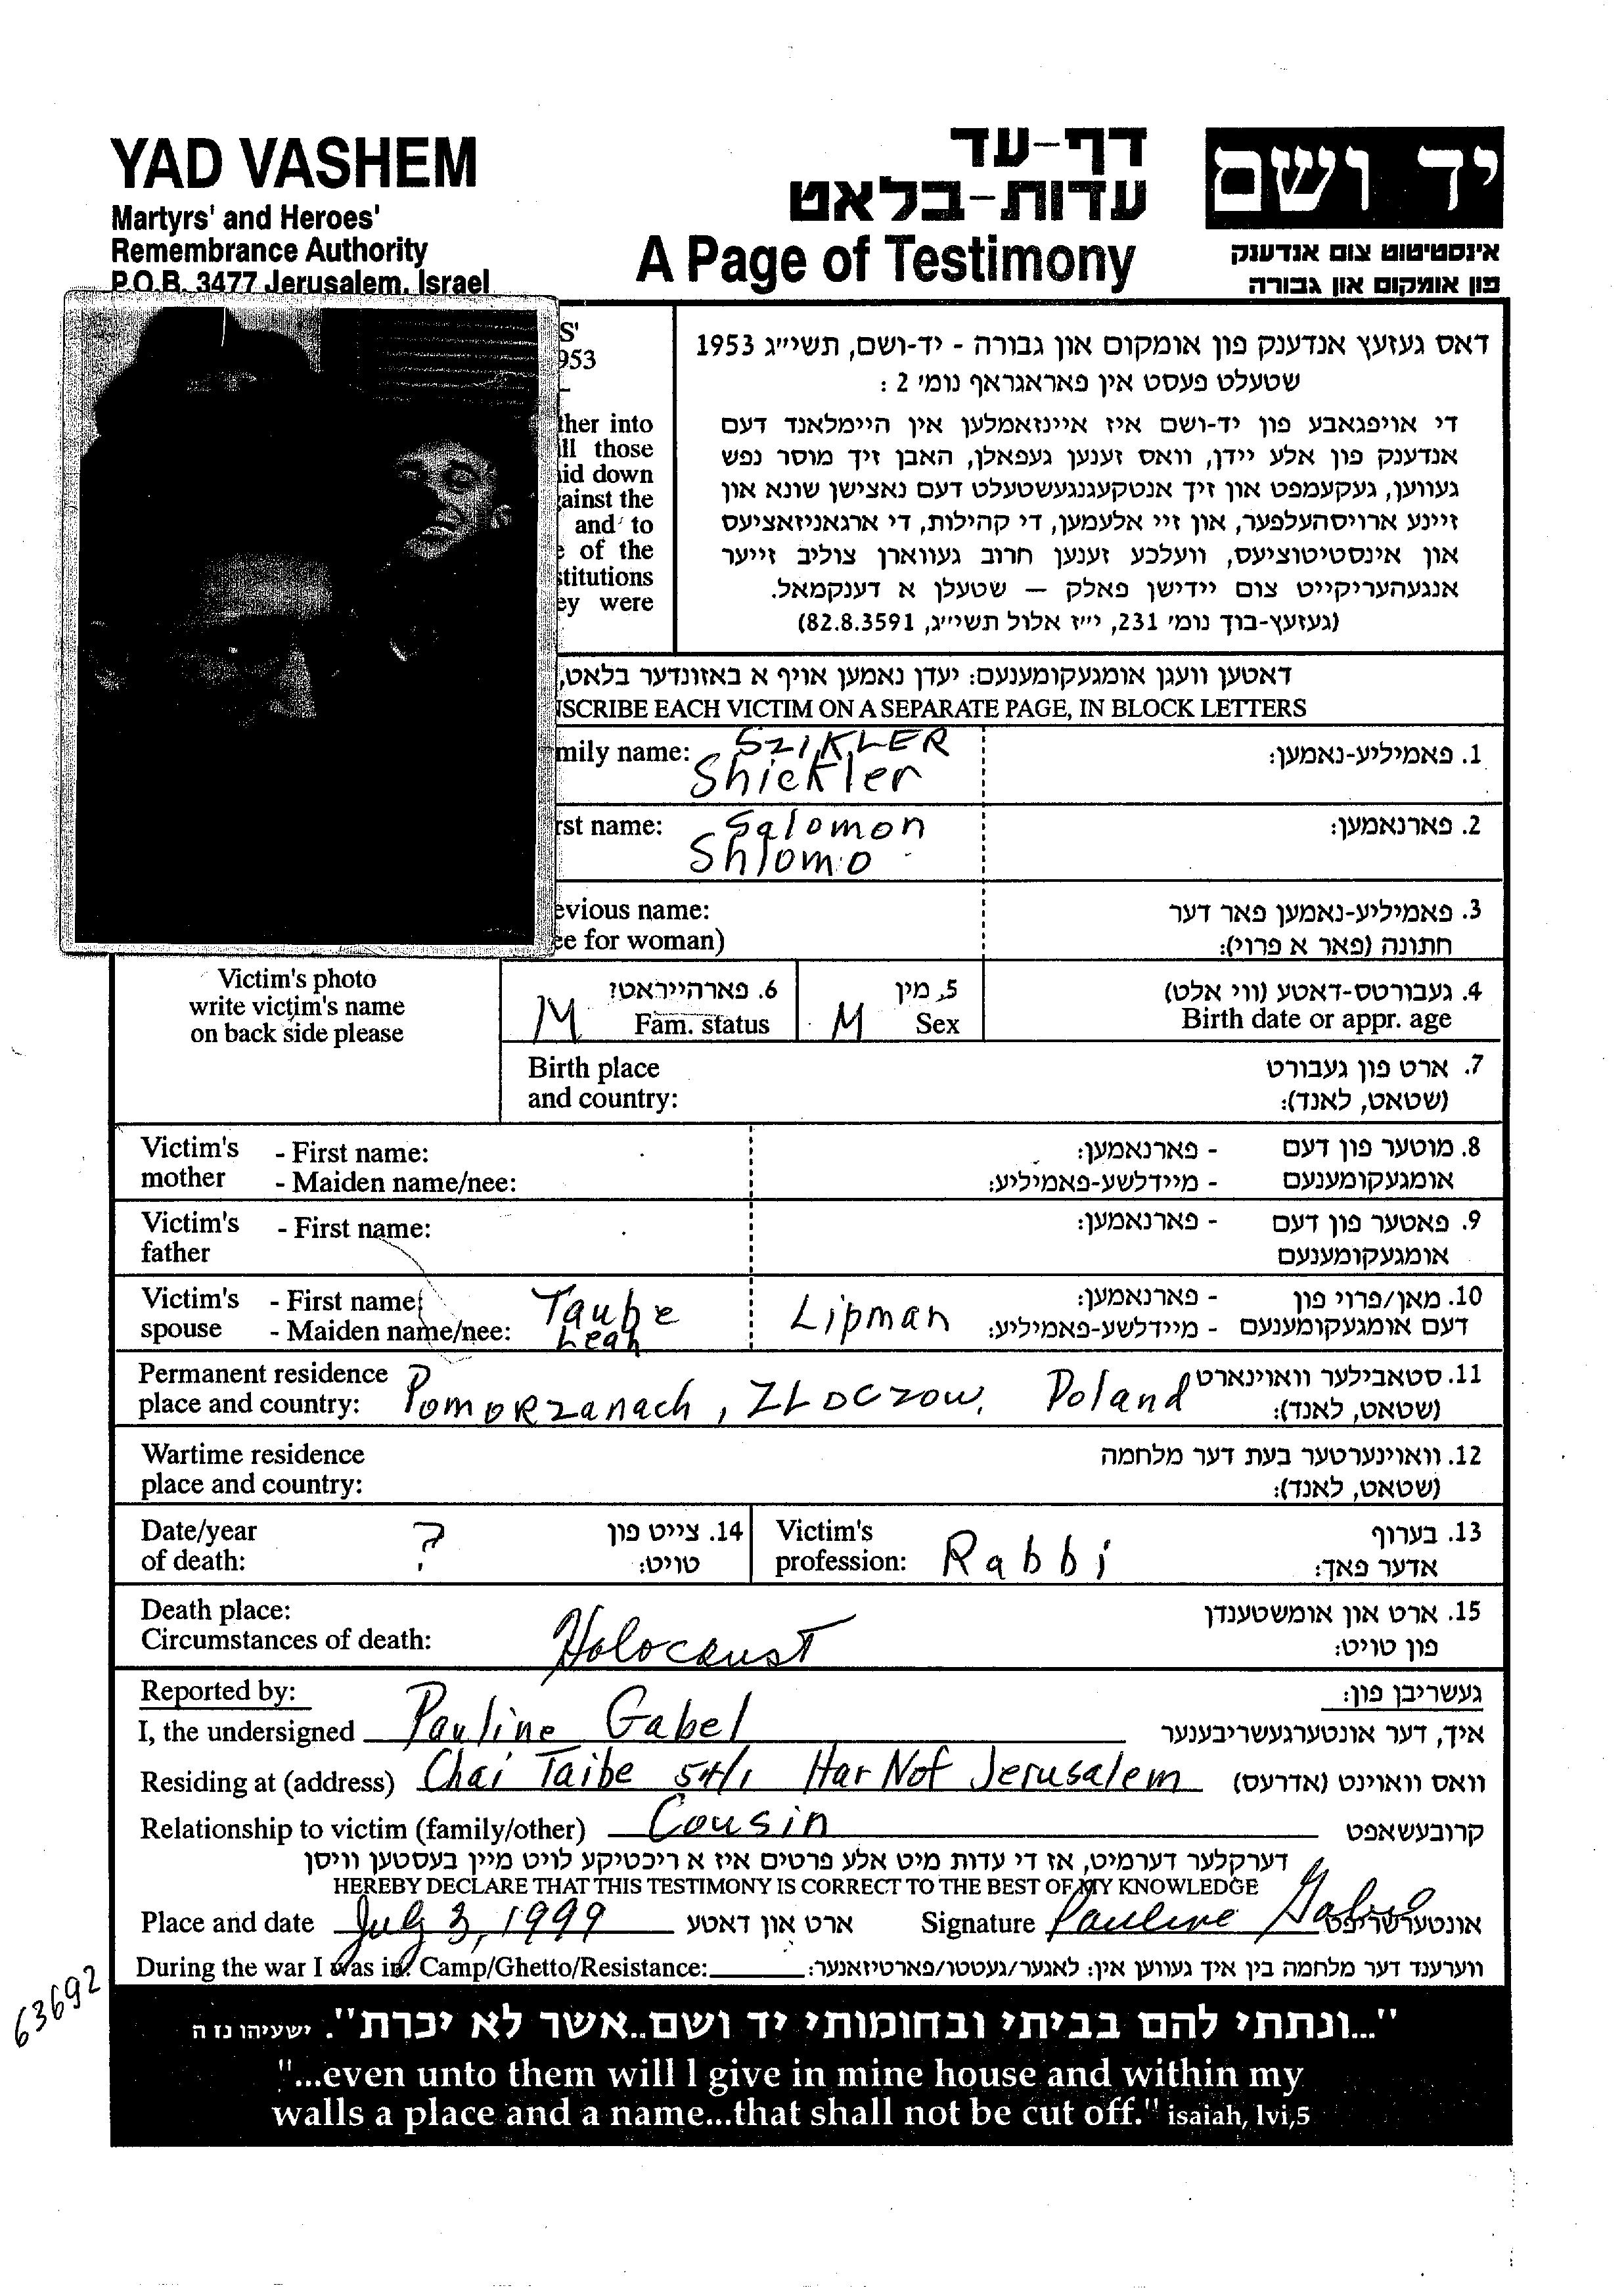 YAD VASHEM
Martyrs' and Heroes'
Remembrance Authority
P.O.B. 3477 Jerusalem, Israel
דף-עד
עדות-בלאט
A Page of Testimony
יד ושם
אינסטיטוט צום אנדענק
פון אומקום און גבורה
S'
953
ther into
ll those
aid down
gainst the
and to
e of the
stitutions
ey were
דאס געזעץ אנדענק פון אומקום און גבורה - יד-ושם, תשי״ג 1953
שטעלט פעסט אין פאראגראף נומ׳ 2 :
די אויפגאבע פון יד-ושם איז איינזאמלען אין היימלאנד דעם
אנדענק פון אלע יידן, וואס זענען געפאלן, האבן זיך מוסר נפש
געווען, געקעמפט און זיך אנטקעגנגעשטעלט דעם נאצישן שונא און
זיינע ארויסהעלפער, און זיי אלעמען, די קהילות, די ארגאניזאציעס
און אינסטיטוציעס, וועלכע זענען חרוב געווארן צוליב זייער
אנגעהעריקייט צום יידישן פאלק — שטעלן א דענקמאל.
(געזעץ-בוך נומ׳ 231, י״ז אלול תשי״ג, 82.8.3591)
דאטען וועגן אומגעקומענעם: יעדן נאמען אויף א באזונדער בלאט,
NSCRIBE EACH VICTIM ON A SEPARATE PAGE, IN BLOCK LETTERS
mily name: SZIKLER
Shickler
1. פאמיליע-נאמען:
rst name: Salomon
Shlomo
2. פארנאמען:
evious name:
ee for woman)
3. פאמיליע-נאמען פאר דער
חתונה (פאר א פרוי):
Victim's photo
write victim's name
on back side please
M
6. פארהייראט?
Fam. status
M
5. מין
Sex
4. געבורטס-דאטע (ווי אלט)
Birth date or appr. age
Birth place
and country:
7. ארט פון געבורט
(שטאט, לאנד):
Victim's - First name:
mother - Maiden name/nee:
8. מוטער פון דעם - פארנאמען:
אומגעקומענעם - מיידלשע-פאמיליע:
Victim's - First name:
father
9. פאטער פון דעם - פארנאמען:
אומגעקומענעם
Victim's - First name: Taube
spouse - Maiden name/nee: Leah
Lipman
10. מאן/פרוי פון - פארנאמען:
דעם אומגעקומענעם - מיידלשע-פאמיליע:
Permanent residence
place and country: Pomorzanach, ZLOCZOW, Poland
11. סטאבילער וואוינארט
(שטאט, לאנד):
Wartime residence
place and country:
12. וואוינערטער בעת דער מלחמה
(שטאט, לאנד):
Date/year
of death: ?
14. צייט פון
טויט:
Victim's
profession: Rabbi
13. בערוף
אדער פאך:
Death place:
Circumstances of death: Holocaust
15. ארט און אומשטענדן
פון טויט:
Reported by:
געשריבן פון:
I, the undersigned Pauline Gabel איך, דער אונטערגעשריבענער
Residing at (address) Chai Taibe 54/1 Har Nof Jerusalem וואס וואוינט (אדרעס)
Relationship to victim (family/other) Cousin קרובעשאפט
דערקלער דערמיט, אז די עדות מיט אלע פרטים איז א ריכטיקע לויט מיין בעסטען וויסן
HEREBY DECLARE THAT THIS TESTIMONY IS CORRECT TO THE BEST OF MY KNOWLEDGE
Place and date July 3, 1999 ארט און דאטע Signature Pauline Gabel אונטערשריפט
During the war I was in: Camp/Ghetto/Resistance: ווערענד דער מלחמה בין איך געווען אין: לאגער/געטטו/פארטיזאנער:
63692
"...ונתתי להם בביתי ובחומותי יד ושם..אשר לא יכרת". ישעיהו נז ה
"...even unto them will I give in mine house and within my
walls a place and a name...that shall not be cut off." isaiah, lvi,5